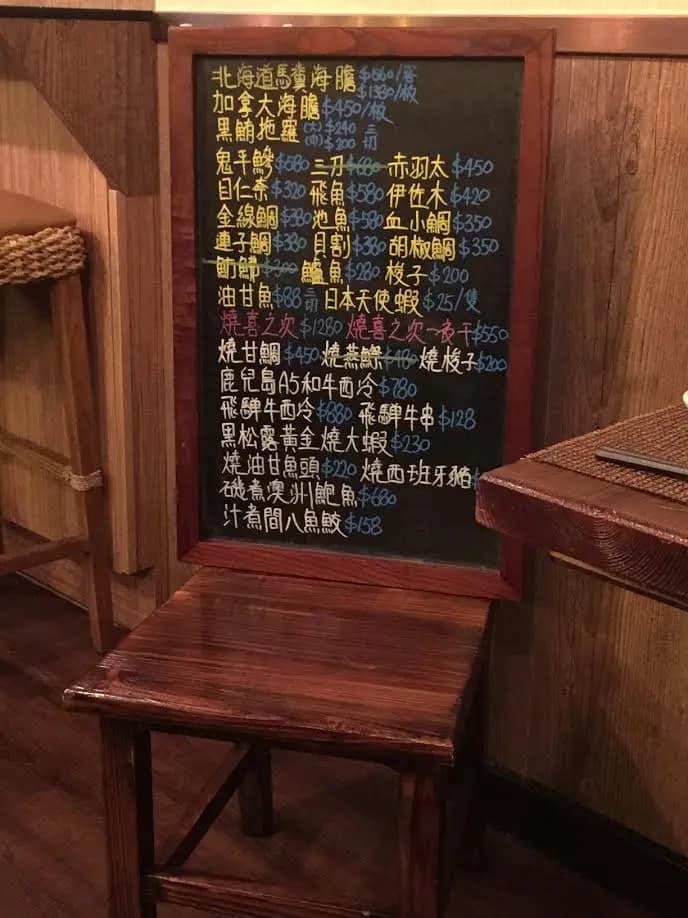 北海道馬糞海膽 $660/客 $1330/板
加拿大海膽 $450/板
黑鮪拖羅 (大) $240 (中) $200 三切
鬼平鰺 $580 三刀 $680 赤羽太 $450
目仁奈 $320 飛魚 $580 伊佐木 $420
金線鯛 $380 池魚 $580 血小鯛 $350
連子鯛 $380 貝割 $380 胡椒鯛 $350
魴鮄 $300 鱸魚 $280 梭子 $200
油甘魚 $88 三切 日本天使蝦 $25/隻
燒喜之次 $1280 燒喜之次一夜干 $550
燒甘鯛 $450 燒燕鰶 $480 燒梭子 $200
鹿兒島A5和牛西冷 $780
飛驒牛西冷 $880 飛驒牛串 $128
黑松露黃金燒大蝦 $230
燒油甘魚頭 $220 燒西班牙豬 $
磯煮澳洲鮑魚 $680
汁煮間八魚鮫 $158